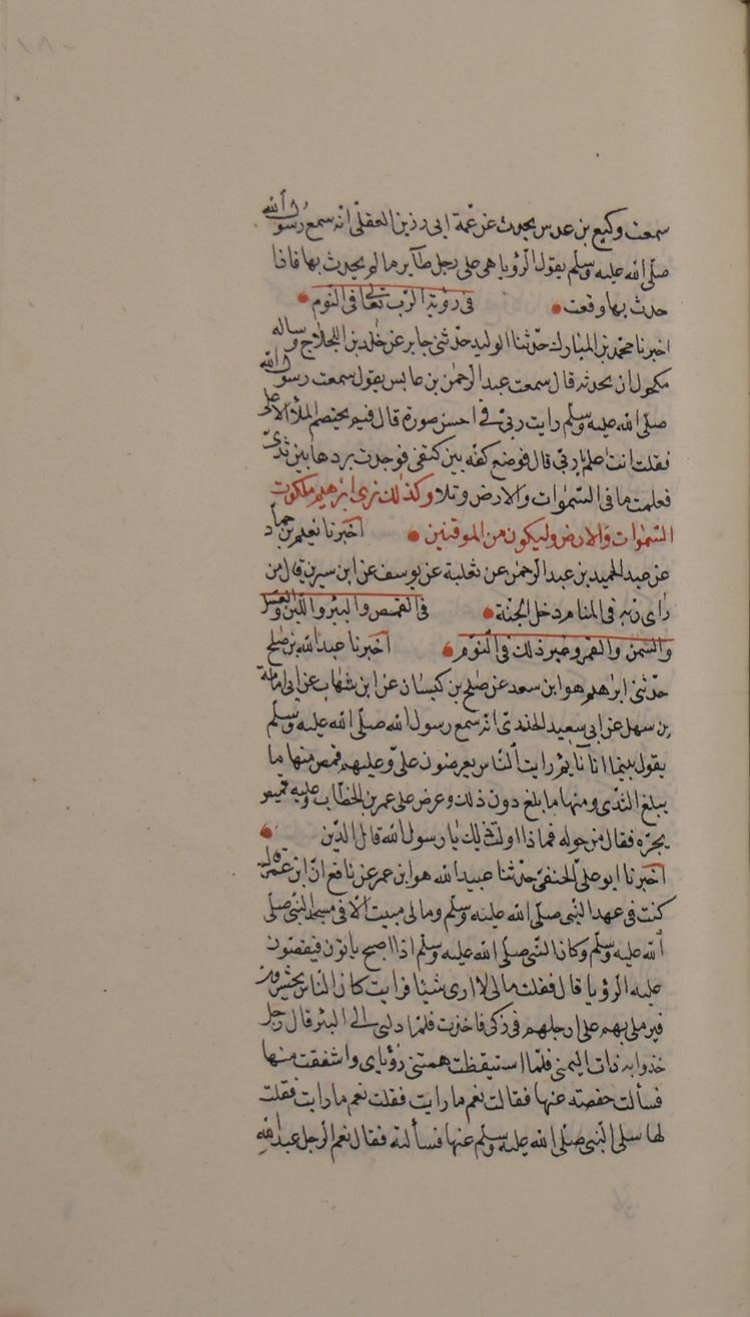 سمعت وكيع بن عدس يحدث عن عمه ابى رزين العقلى انه سمع رسول الله
صلى الله عليه وسلم يقول الرؤيا هى على رجل طاير ما لم يحدث بها فاذا
حدث بها وقعت فى رؤية الرب تعالى فى النوم
اخبرنا محمد بن المبارك حدثنا الوليد حدثنى جابر عن خلد بن اللجلاج وساله
مكحول ان يحدثه قال سمعت عبد الرحمن بن عايس يقول سمعت رسول الله
صلى الله عليه وسلم رايت ربى فى احسن صورة قال فيم يختصم الملأ الاعلى
فقلت انت اعلم يا ربى قال فوضع كفه بين كتفى فوجدت بردها بين ثدى
فعلمت ما فى السموات والارض وتلا وكذلك نرى ابرهيم ملكوت
السموات والارض وليكون من الموقنين اخبرنا نعيم بن حماد
عن عبد الحميد بن عبد الرحمن عن ثعلبة عن يوسف عن ابن سيرين قال من
راى ربه فى المنام دخل الجنة فى القمص والبئر واللبن والعسل
والسمن والقمر وغير ذلك فى النوم اخبرنا عبد الله بن صلح
حدثنى ابرهيم هو ابن سعد عن صلح بن كيسان عن ابن شهاب عن ابى امامة
بن سهل عن ابى سعيد الخدرى انه سمع رسول الله صلى الله عليه وسلم
يقول بينما انا نايم رايت الناس يعرضون على وعليهم قمص منها ما
يبلغ الثدى ومنها ما بلغ دون ذلك وعرض على عمر بن الخطاب وعليه قميص
يجره فقال من حوله فماذا اولت ذلك يا رسول الله قال الدين
اخبرنا ابو على الحنفى حدثنا عبيد الله هو ابن عمر عن نافع ان ابن عمر قال
كنت فى عهد النبى صلى الله عليه وسلم وما لى مبيت الا فى مسجد النبى صلى
الله عليه وسلم وكان النبى صلى الله عليه وسلم اذا اصبح ياتون فيقصون
عليه الرؤيا قال فقلت ما لى لا ارى شيئا فرايت كان الناس يحشرون
فيرمى بهم على ارجلهم فى ركى فاخذت فلما دلى الى البئر قال رجل
خذوا به ذات اليمنى فلما استيقظت همتنى رؤياى واشفقت منها
فسألت حفصة عنها فقالت نعم ما رايت فقلت نعم ما رايت فقلت
لها سلى النبى صلى الله عليه وسلم عنها فسألته فقال نعم الرجل عبد الله